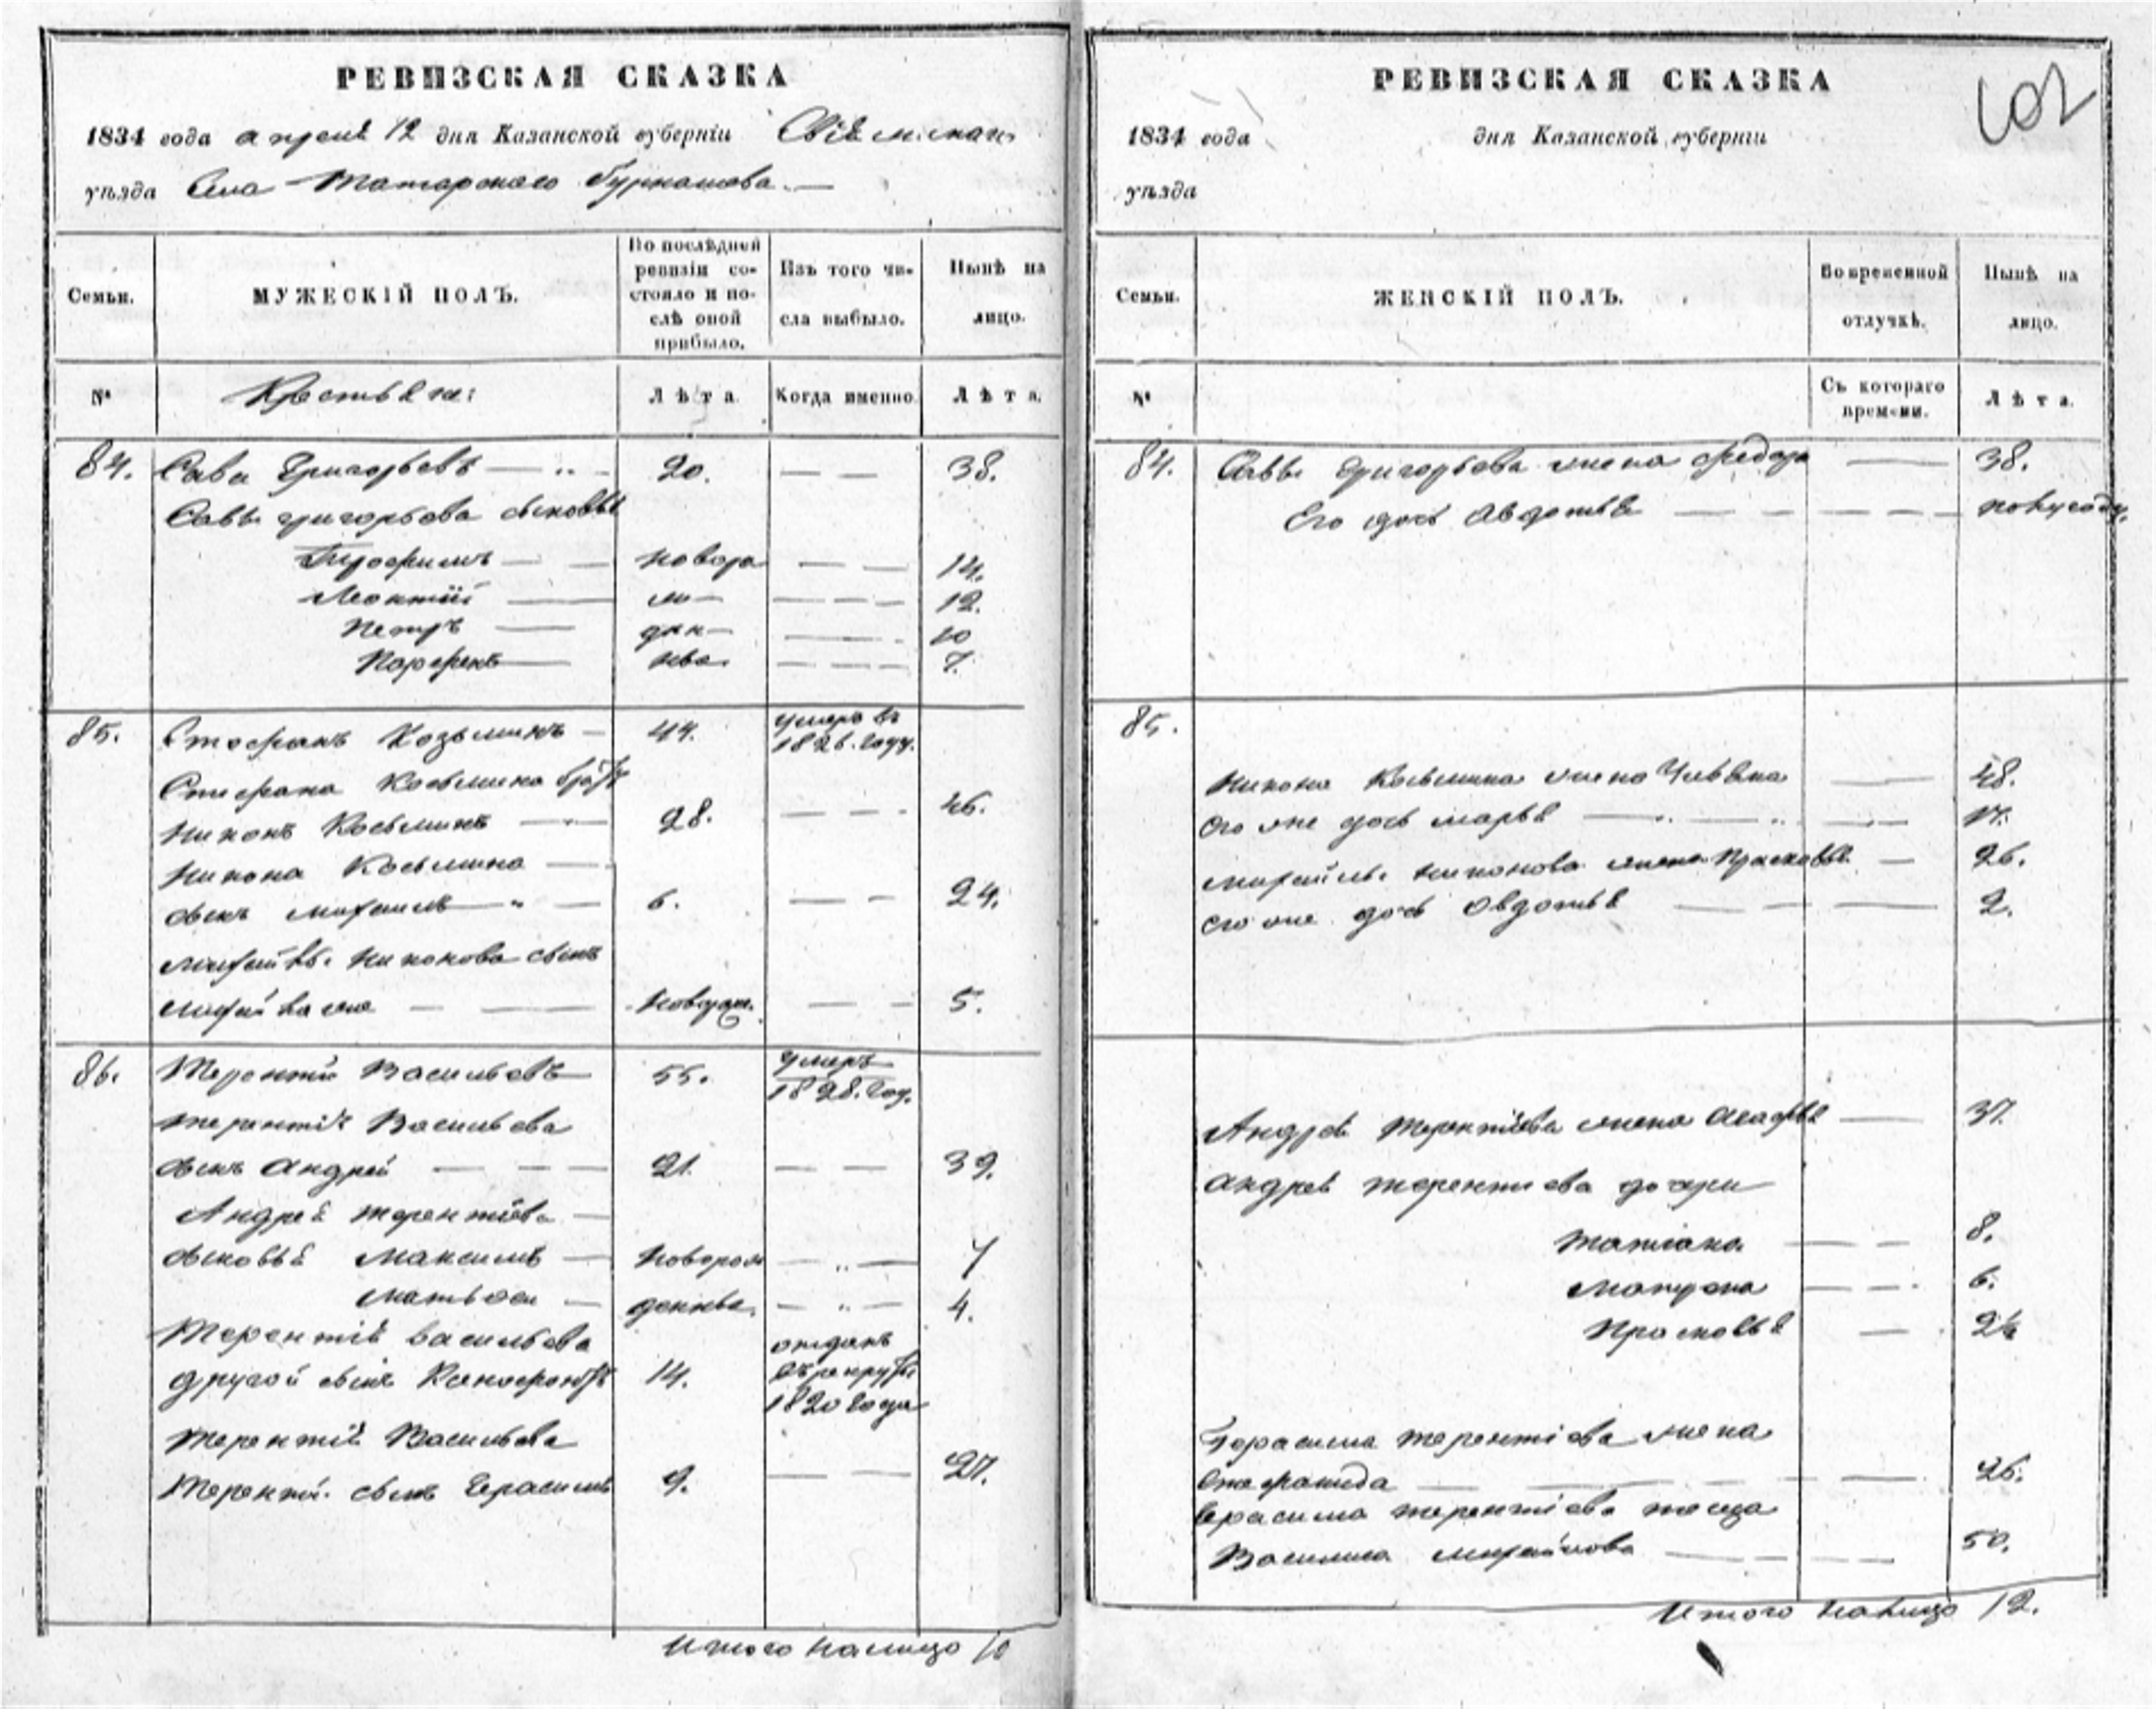 РЕВИЗСКАЯ СКАЗКА
1834 года апреля 12 дня Казанской губерніи
уѣзда Села Татарскаго Бурнашова.
Семьи.
МУЖЕСКІЙ ПОЛЪ.
По послѣдней ревизіи состояло и послѣ оной прибыло.
Изъ того числа выбыло.
Нынѣ на лицо.
№
Крестьяне:
Лѣта.
Когда именно.
Лѣта.
84. Сава Григорьевъ 20. 38.
Саввы Григорьева сыновья
Трофимъ новоро 14.
Леонтій ж 12.
Петръ ден 10
Парфенъ ные 7.
85. Стефанъ Козьминъ 44. умеръ въ 1826. году.
Стефана Козьмина братъ
Никонъ Козьминъ 28. 46.
Никона Козьмина
сынъ Михаилъ 6. 24.
Михайлы Никонова сынъ
Михайла же новорож. 5.
86. Терентій Васильевъ 55. умеръ 1828. год.
Терентія Васильева
сынъ Андрей 21. 39.
Андрея Терентіева
сыновья Максимъ новорож 7
Матвей денные. 4.
Терентія Васильева отданъ
другой сынъ Ксенофонтъ 14. въ рекруты
1820 года
Терентія Васильева
сынъ Герасимъ 9. 27.
Итого налицо 10
РЕВИЗСКАЯ СКАЗКА
102
1834 года дня Казанской губерніи
уѣзда
Семьи.
ЖЕНСКІЙ ПОЛЪ.
Во временной отлучкѣ.
Нынѣ на лицо.
№
Съ котораго времени.
Лѣта.
84. Саввы Григорьева жена Федора 38.
Его дочь Авдотья полугоду.
85.
Никона Козьмина жена Ульяна 48.
его же дочь Марья 17.
Михайлы Никонова жена Прасковья 26.
его же дочь Овдотья 2.
Андрея Терентіева жена Агафья 37.
Андрея Терентиева дочери
Татиана 8.
Матрона 6.
Прасковья 2½
Герасима Терентіева жена
Стефанида 26.
Герасима Терентіева теща
Василиса Михайлова 50.
Итого налицо 12.